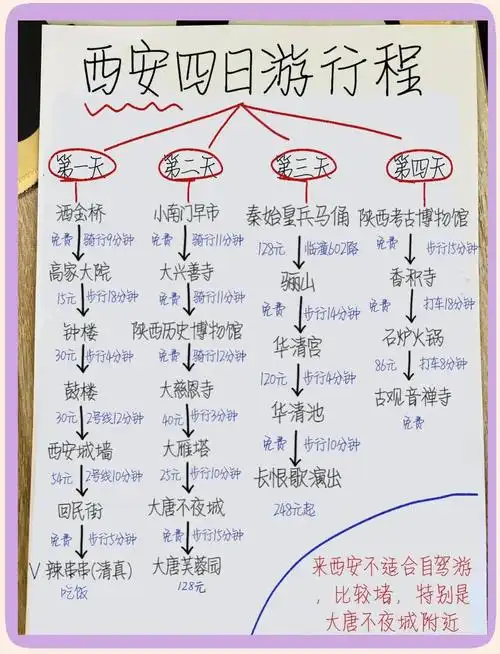 西安四日游行程
第一天
洒金桥
免费 骑行9分钟
高家大院
15元 步行18分钟
钟楼
30元 步行4分钟
鼓楼
30元 2号线12分钟
西安城墙
54元 2号线10分钟
回民街
免费 步行5分钟
V 辣串串(清真)
吃饭
第二天
小南门早市
免费 骑行11分钟
大兴善寺
免费 骑行11分钟
陕西历史博物馆
免费 骑行12分钟
大慈恩寺
40元 步行3分钟
大雁塔
25元 步行10分钟
大唐不夜城
免费 步行15分钟
大唐芙蓉园
128元
第三天
秦始皇兵马俑
128元 临潼602路
骊山
免费 步行14分钟
华清宫
120元 步行4分钟
华清池
免费 步行10分钟
长恨歌演出
248元起
第四天
陕西考古博物馆
免费 步行15分钟
香积寺
免费 打车18分钟
石炉火锅
86元 打车8分钟
古观音禅寺
免费
来西安不适合自驾游
，比较堵，特别是
大唐不夜城附近